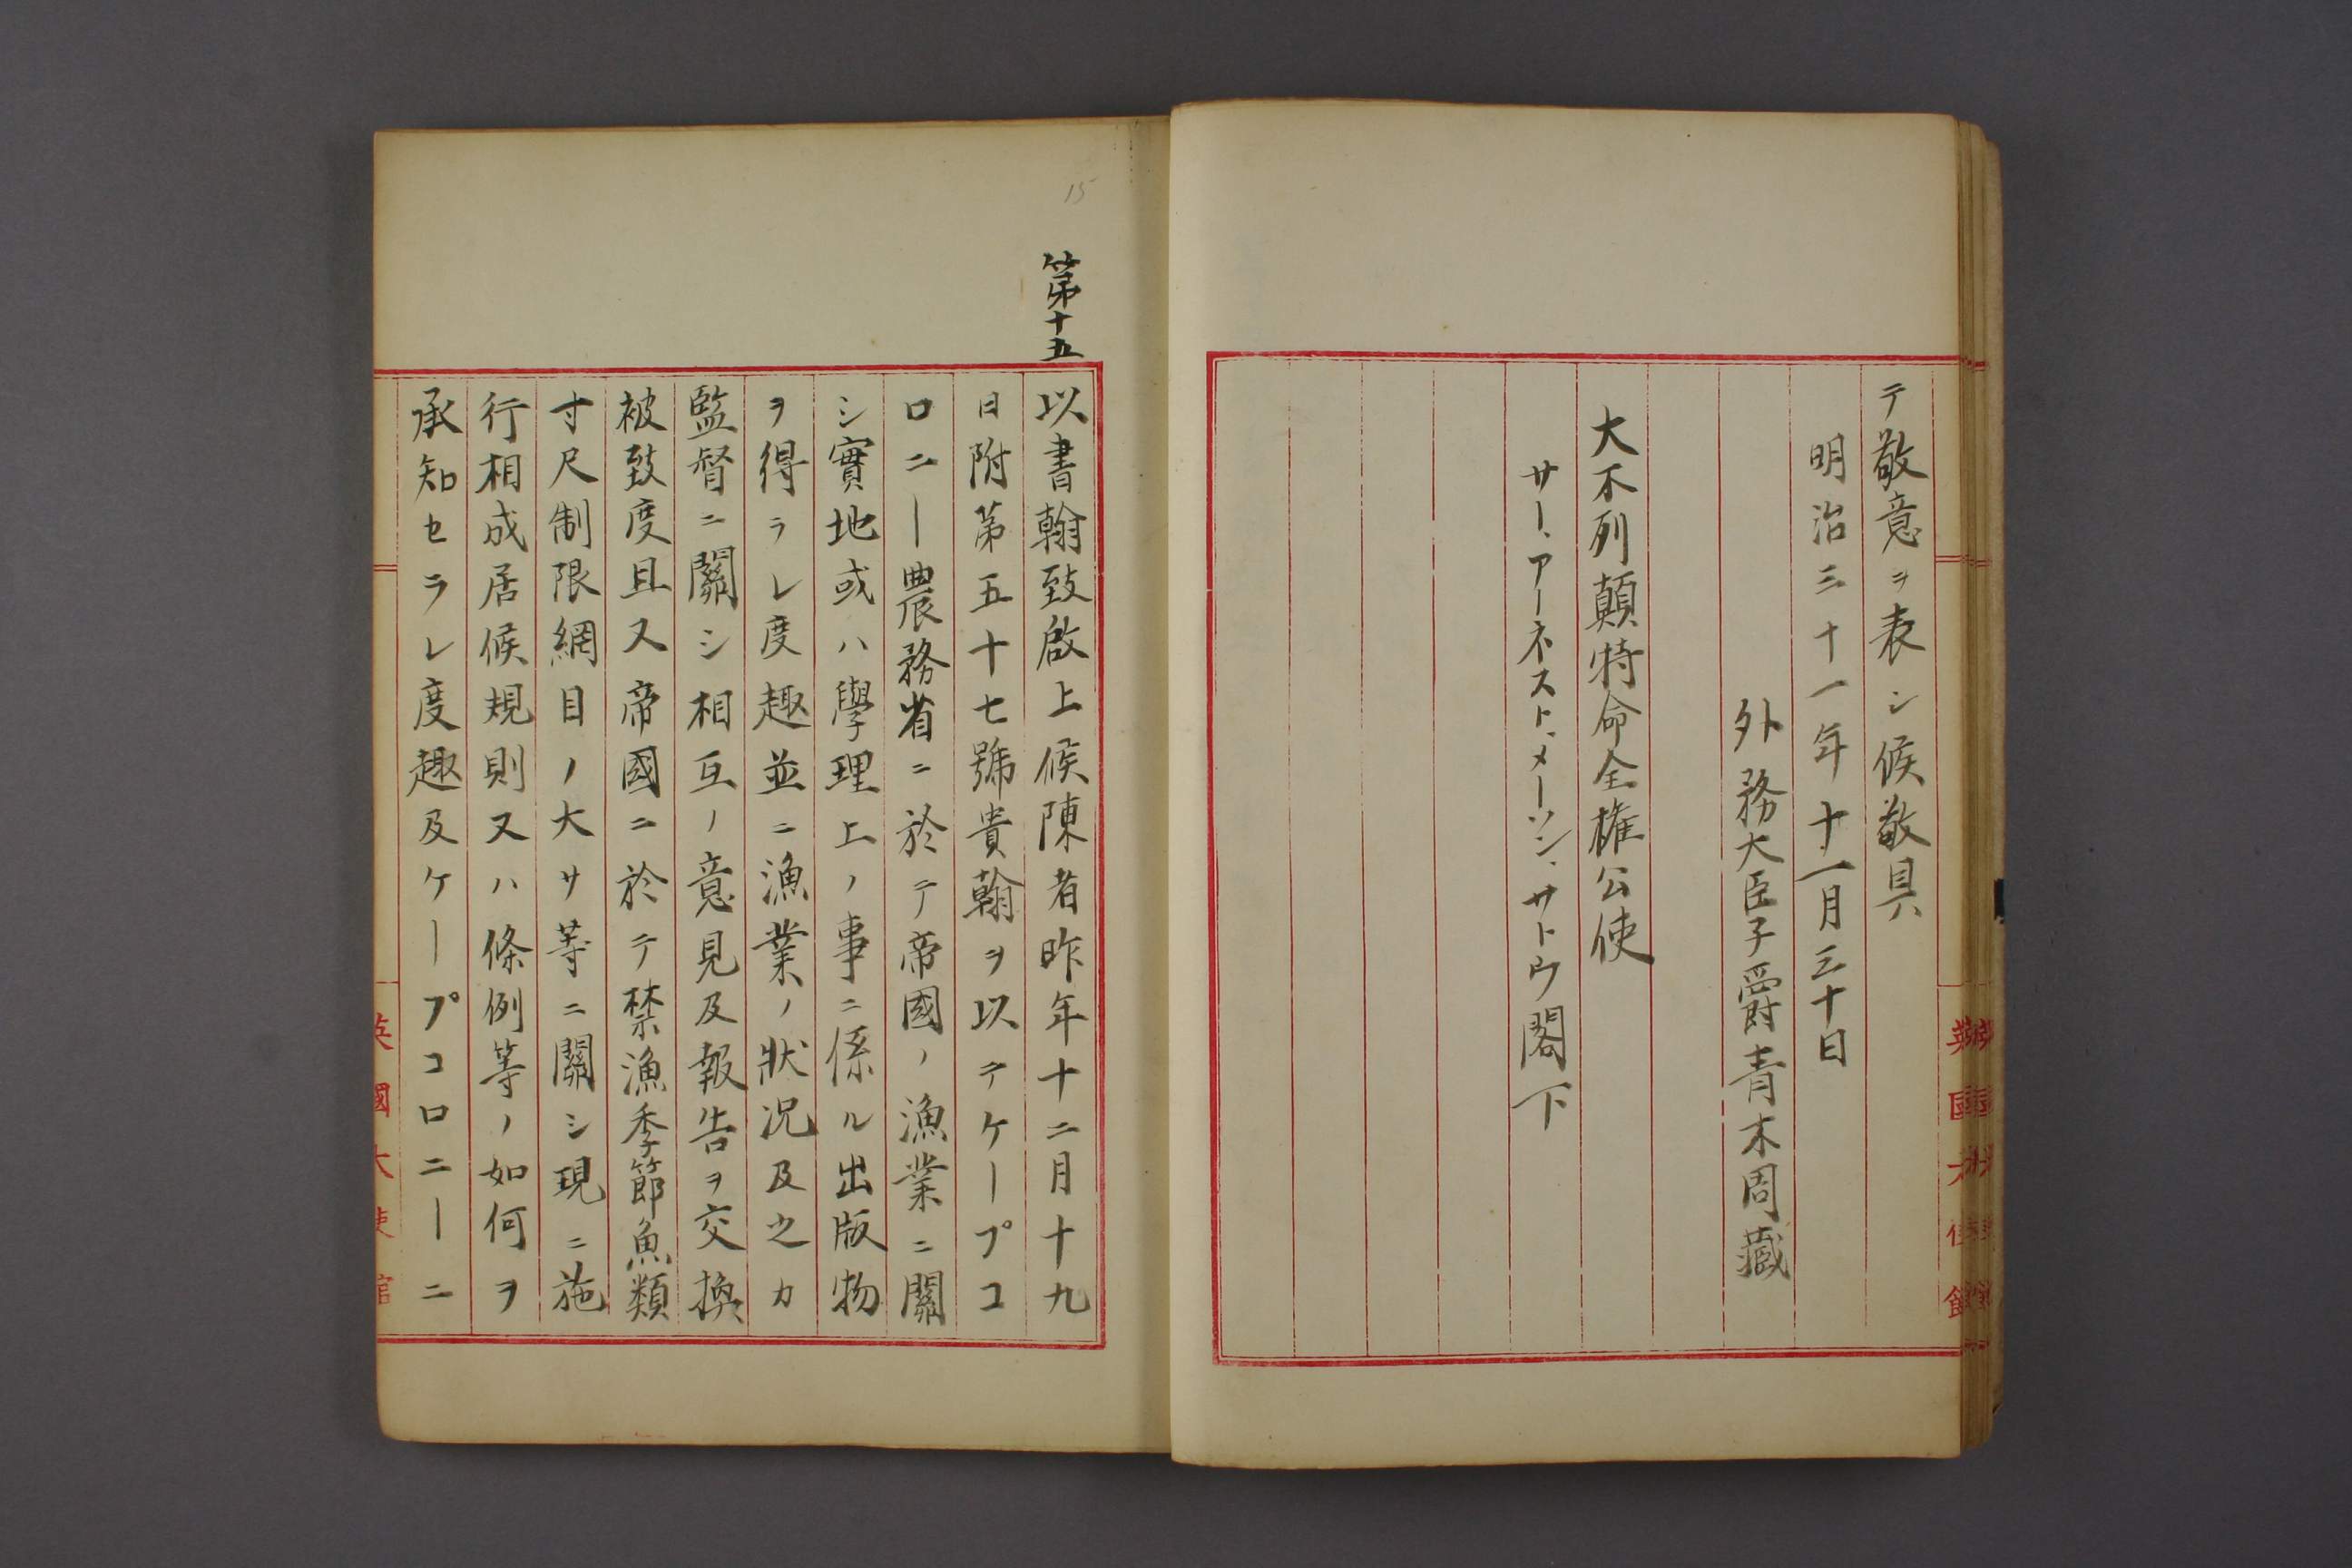 テ敬意ヲ表シ候敬具
明治三十一年十一月三十日
外務大臣子爵青木周藏
大不列顛特命全権公使
サー、アーネスト、メーソン、サトウ閣下
15
第十五
以書翰致啟上候陳者昨年十二月十九
日附第五十七號貴翰ヲ以テケープコ
ロニー農務省ニ於テ帝國ノ漁業ニ關
シ實地或ハ學理上ノ事ニ係ル出版物
ヲ得ラレ度趣並ニ漁業ノ狀况及之カ
監督ニ關シ相互ノ意見及報告ヲ交換
被致度且又帝國ニ於テ禁漁季節魚類
寸尺制限網目ノ大サ等ニ關シ現ニ施
行相成居候規則又ハ條例等ノ如何ヲ
承知セラレ度趣及ケープコロニーニ
英國大使館